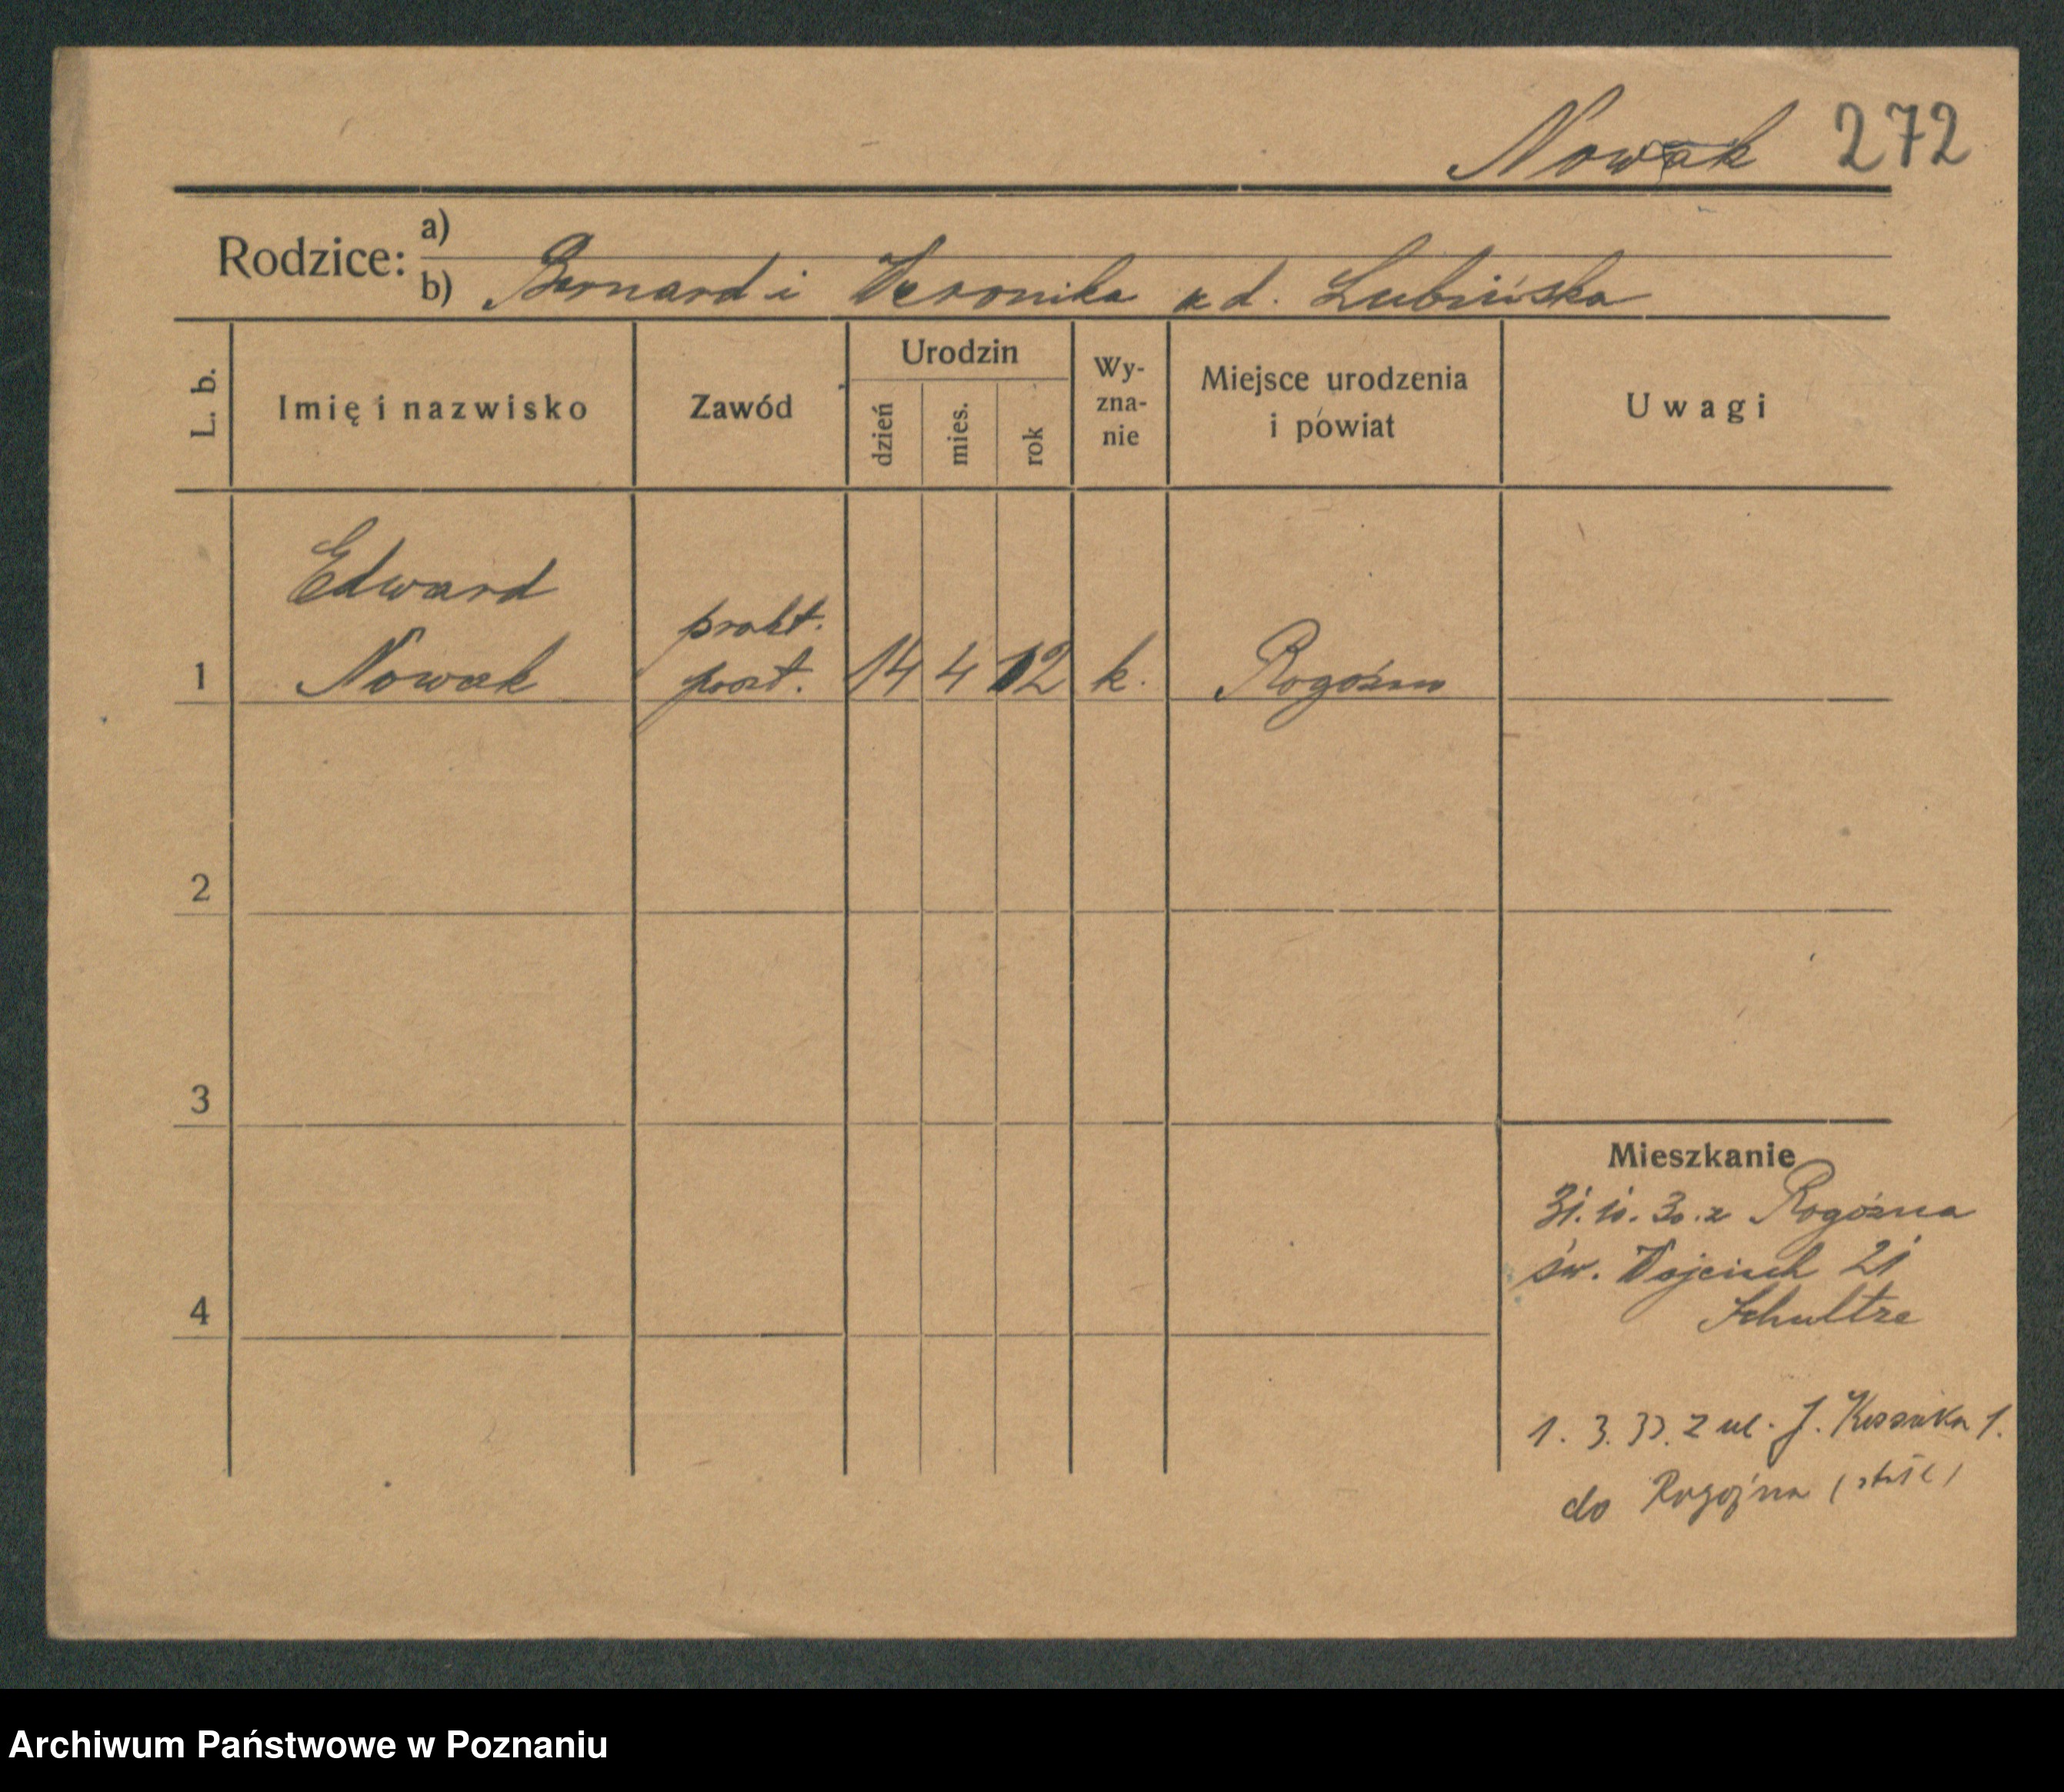 Nowak 272
Rodzice: a)
b) Bernard i Weronika zd. Lubińska
L. b.
Imię i nazwisko
Zawód
Urodzin
dzień
mies.
rok
Wy-
zna-
nie
Miejsce urodzenia
i powiat
Uwagi
Edward
prakt.
1 Nowak post. 14 4 12 k. Rogóźno
2
3
4
Mieszkanie
31. 10. 30. z Rogóźna
św. Wojciech 21
Schultze
1. 3. 33. z ul. J. Kossaka 1.
do Rogoźna
Archiwum Państwowe w Poznaniu